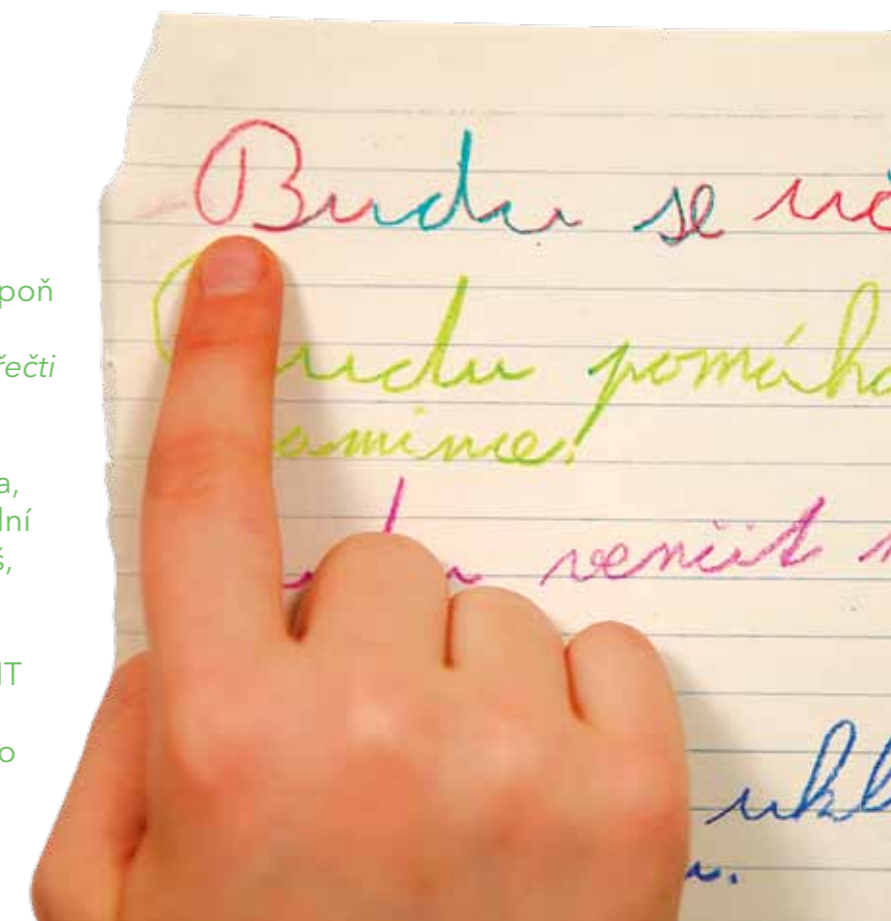 poň
řečti
a,
lní
š,
IT
o
Budu se uč
udu pomáha
amince!
u venčit
ukl